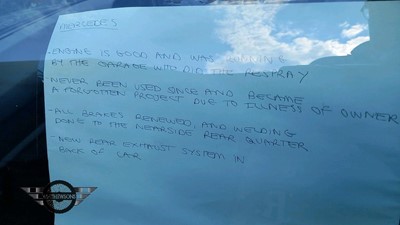 MERCEDES
- ENGINE IS GOOD AND WAS
BY THE GARAGE WHO DID THE RESTRAY
- NEVER BEEN USED SINCE AND BECAME
A FORGOTTEN PROJECT DUE TO ILLNESS OF OWNER
- ALL BRAKES RENEWED, AND WELDING
DONE TO THE NEARSIDE REAR QUARTER
- NEW REAR EXHAUST SYSTEM IN
BACK OF CAR